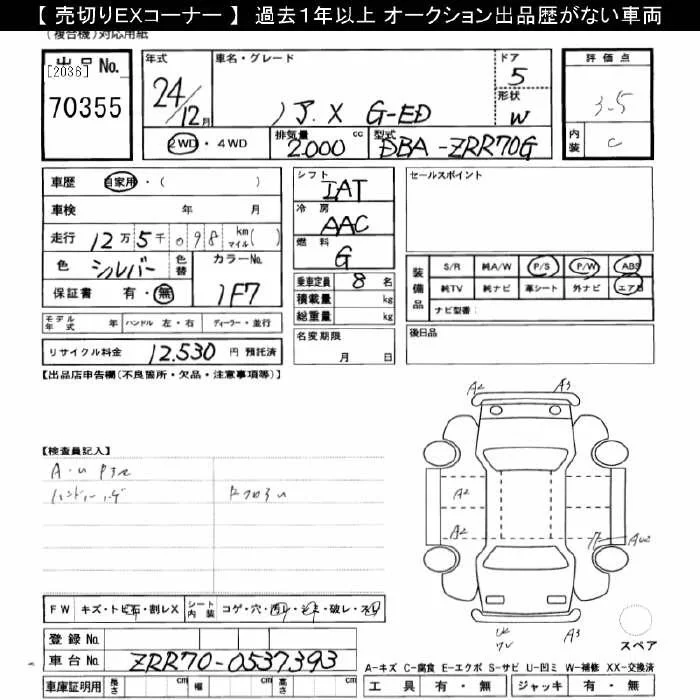 【 売切りEXコーナー 】 過去１年以上 オークション出品歴がない車両
(複合機)対応用紙
出品No. [2036] 70355
年式 24/12月
車名・グレード ノア X G-ED
ドア 5
形状 W
2WD・4WD
排気量 2000 cc
型式 DBA-ZRR70G
評価点 3.5
内装 C
車歴 自家用・( )
車検 年 月
走行 12万5千098 km マイル( )
色 シルバー 色替 カラーNo. 1F7
保証書 有・無
モデル年式 年 ハンドル 左・右 ディーラー・並行
リサイクル料金 12,530 円 預託済
シフト IAT
冷房 AAC
燃料 G
乗車定員 8 名
積載量 kg
総重量 kg
名変期限 月 日
セールスポイント
装備品 S/R 純A/W P/S P/W ABS
純TV 純ナビ 革シート 外ナビ エアB
ナビ型番：
後日品
【出品店申告欄(不良箇所・欠品・注意事項等)】
【検査員記入】
A2 A3
A2
A2
A3
FW キズ・トビ石・割レX シート内装 コゲ・穴・汚レ・
登録No.
車台No. ZRR70-0537393
車庫証明用 長さ cm 幅 cm 高さ cm
スペア
A-キズ C-腐食 E-エクボ S-サビ U-凹ミ W-補修 XX-交換済
工具 有・無 ジャッキ 有・無